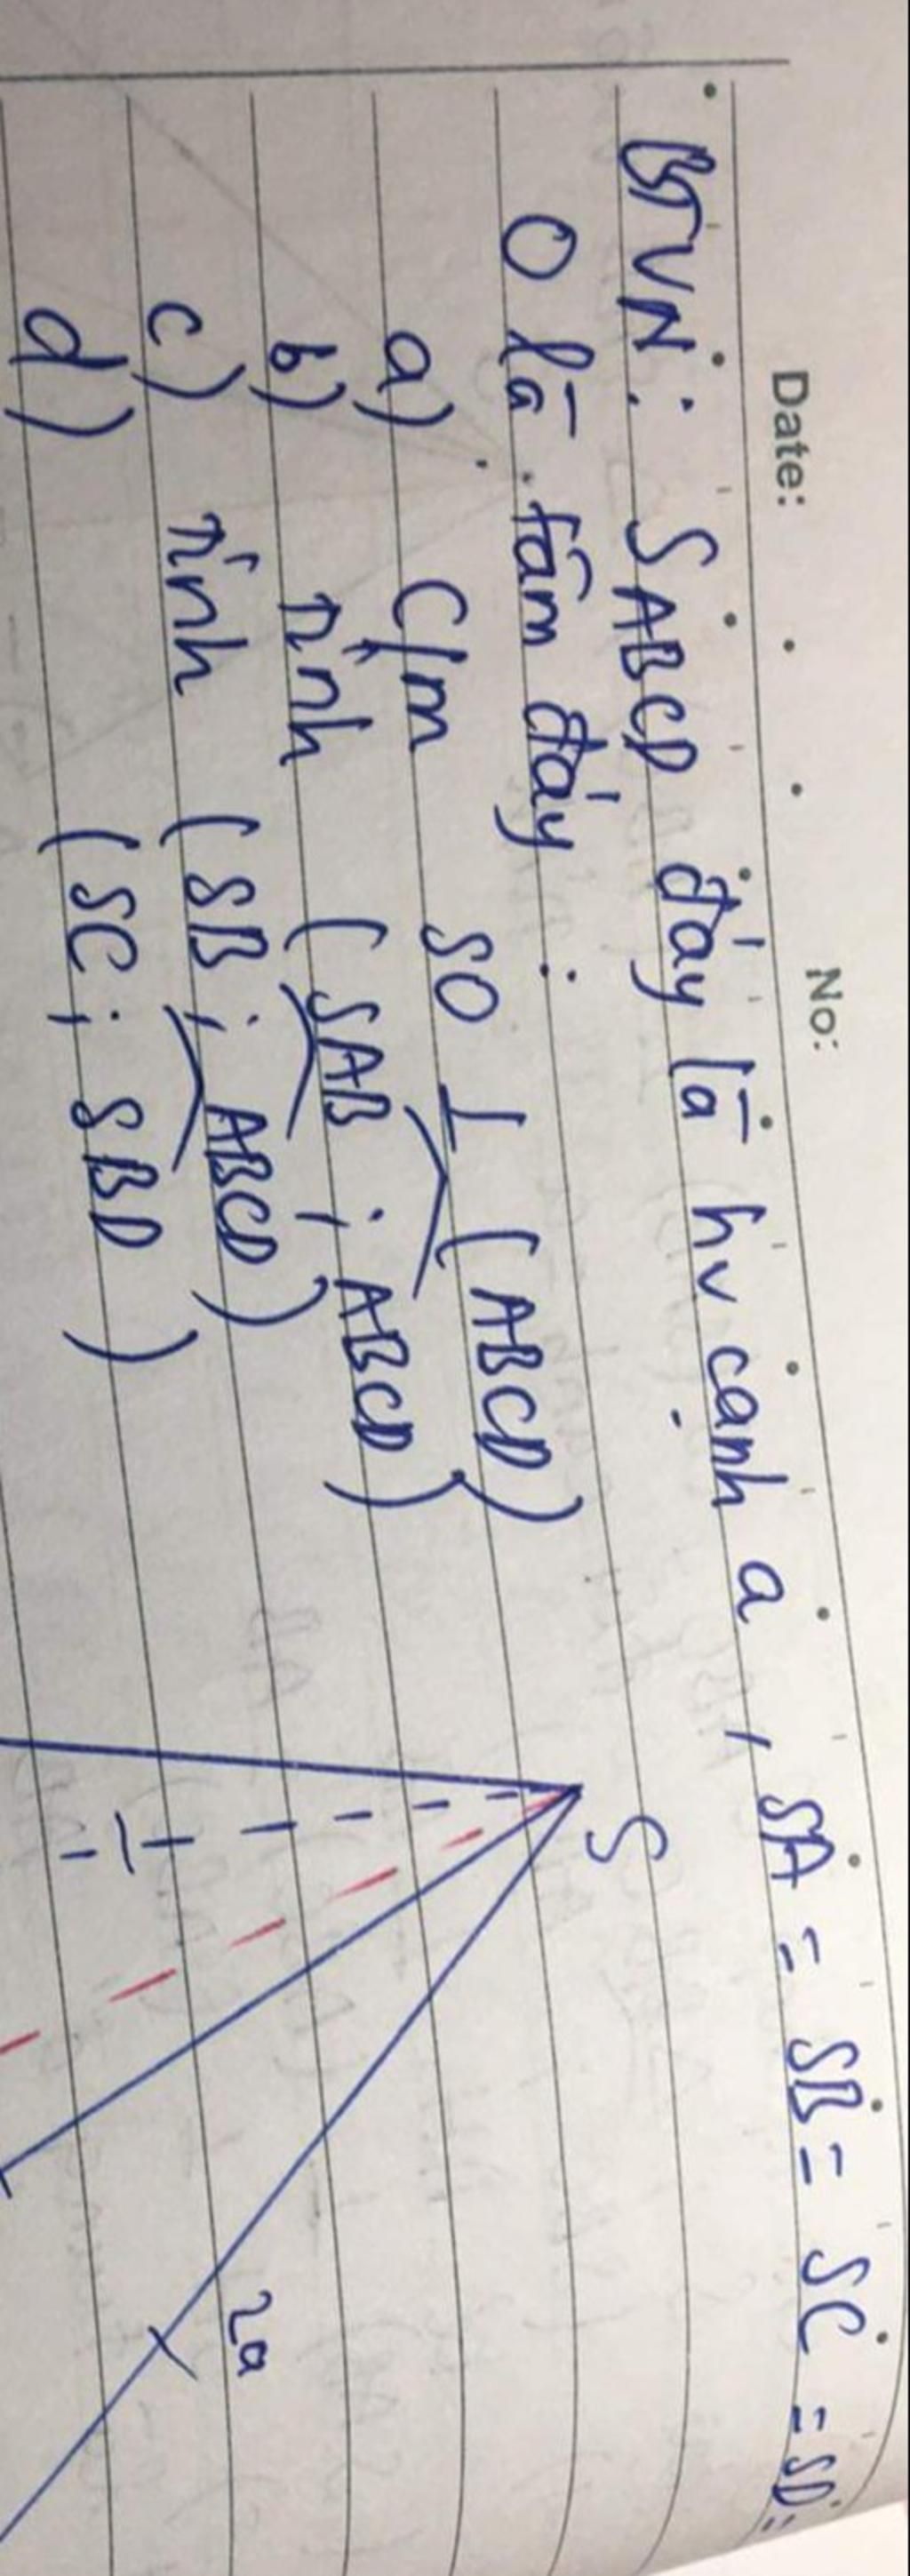 Date: No:
BTVN: SABCD đáy là hv cạnh a, SA = SB = SC = SD =
O là tâm đáy.
a) C/m SO ⊥ (ABCD)
b) Tính (SAB; ABCD)
c) Tính (SB; ABCD)
d) (SC; SBD)
S
2a